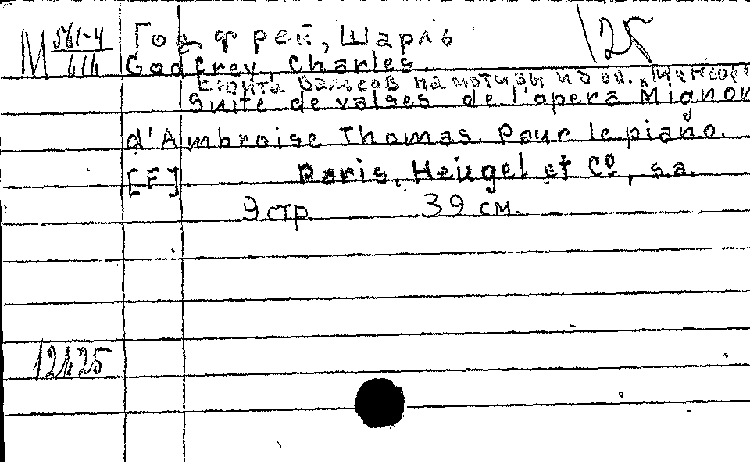 М 561-4/616 Годфрей, Шарль 125
Godfrey, Charles.
Сюита вальсов на мотивы из оп.
Suite de valses de l'opera Mignon
d'Ambroise Thomas. Pour le piano.
[F] Paris, Heugel et Cº, s.a.
9 стр. 39 см.
12425